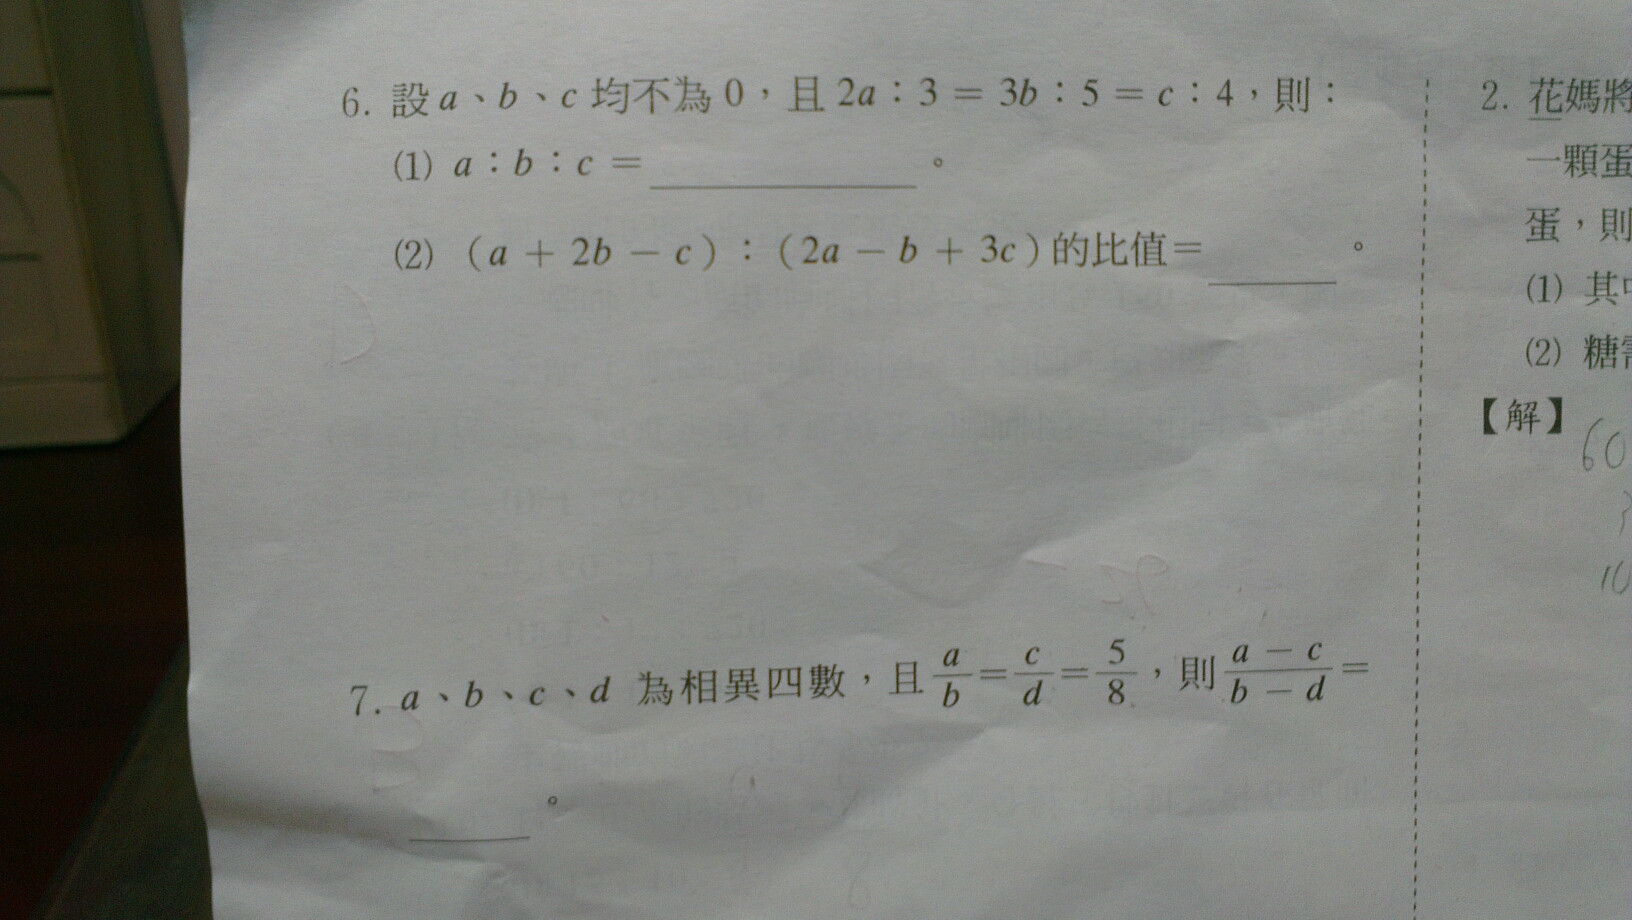 6. 設 a、b、c 均不為 0，且 2a：3 = 3b：5 = c：4，則：
(1) a：b：c = ＿＿＿＿＿。
(2) (a + 2b − c)：(2a − b + 3c) 的比值 = ＿＿＿。
7. a、b、c、d 為相異四數，且 a/b = c/d = 5/8，則 (a − c)/(b − d) =
＿＿＿。
2. 花媽將
一顆蛋
蛋，則
(1) 其中
(2) 糖
【解】
60
10